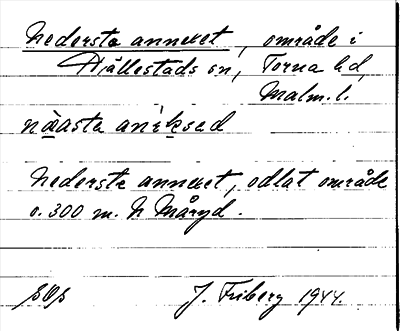 Nedersta annexet, område i
Hjällestads sn, Torna hd,
Malm. l.
nä̀asta anèksəd
Nedersta annexet, odlat område
c. 300 m. N Måryd.
J. Friberg 1944.